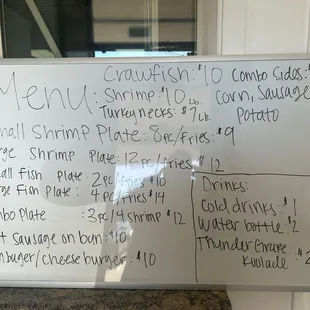 Menu: Crawfish: $10 Combo Sides: $
Shrimp: $10 Lb. Corn, Sausage
Turkey necks: $7 Lb. Potato
mall Shrimp Plate: 8pc/fries: $9
rge Shrimp Plate: 12pc/fries $12
all fish Plate: 2pc/fries $10
rge Fish Plate: 4pc/fries $14
mbo Plate : 3pc/4 shrimp $12
t Sausage on bun: $10
mbuger/cheeseburger: $10
Drinks:
Cold drinks: $1
Water bottle: $2
Thunder Grape
Kuolade: $2